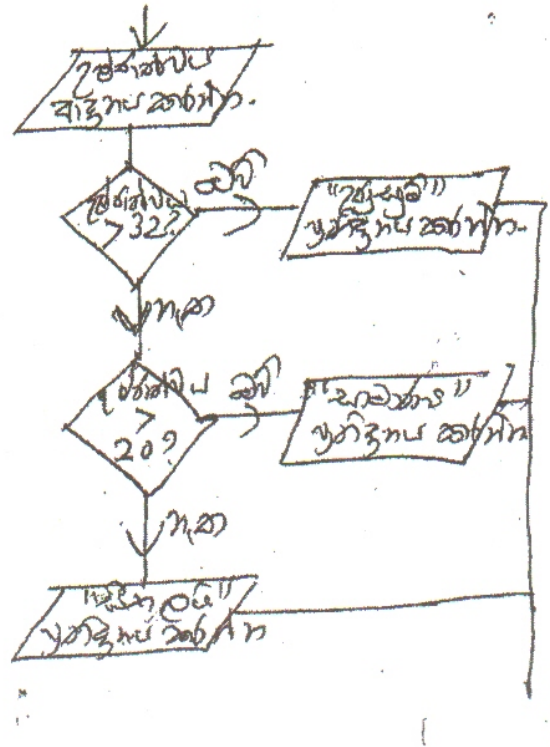 උෂ්ණත්වය
ආදානය කරන්න.
උෂ්ණත්වය
> 32?
ඔව්
"උණුසුම්"
ප්‍රතිදානය කරන්න.
නැත
උෂ්ණත්වය
>
20?
ඔව්
"සාමාන්‍ය"
ප්‍රතිදානය කරන්න
නැත
ප්‍රතිදානය කරන්න